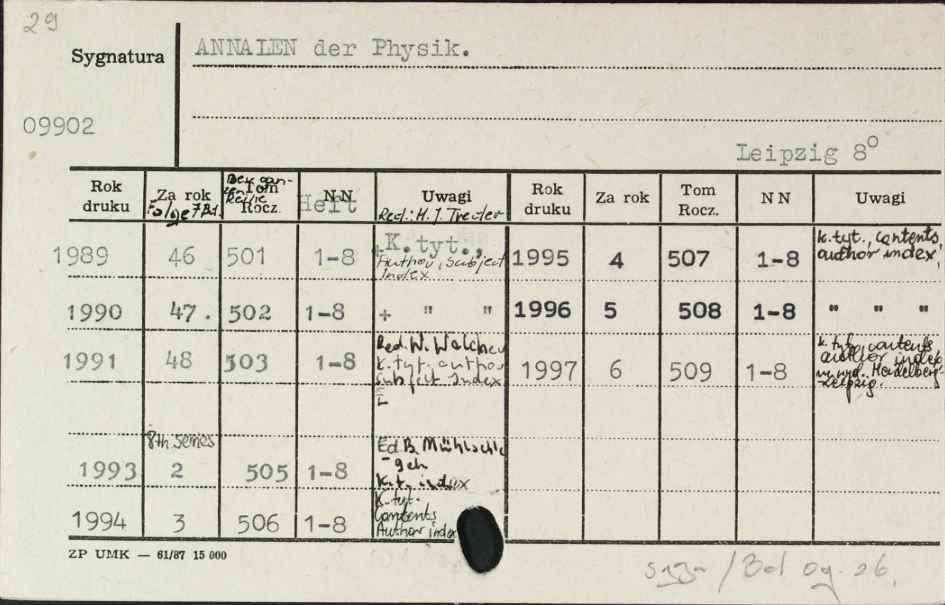 29
Sygnatura
ANNALEN der Physik.
09902
Leipzig 8°
Rok druku Za rok Tom Rocz. NN Uwagi Rok druku Za rok Tom Rocz. NN Uwagi
Folge 7 Bd. Heft Red.: H. J. Treder
1989 46 501 1-8 + K. tyt., Author, Subject Index 1995 4 507 1-8 k. tyt., contents, author index,
1990 47. 502 1-8 + " " 1996 5 508 1-8 " " "
1991 48 503 1-8 Red. W. K. tyt. author subject Index 1997 6 509 1-8 k. tyt., contents author index Heidelberg-Leipzig.
8th series
1993 2 505 1-8 Ed. B. Mühlschlegel K. t. index
1994 3 506 1-8 K. tyt. Contents Author index
ZP UMK — 61/87 15 000